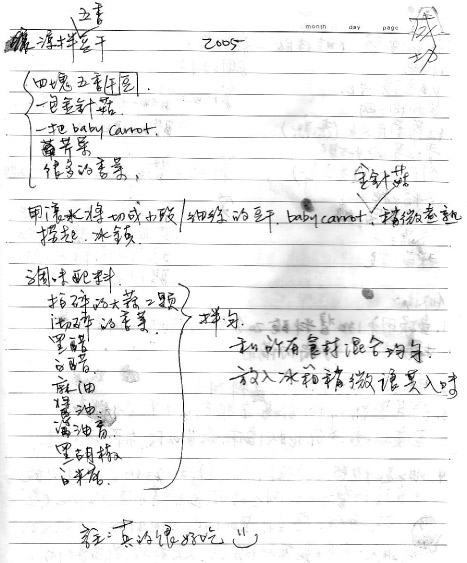 month day page
五香
涼拌豆干 2005
四塊五香豆干
一包金針菇
一把baby carrot.
荸荠
很多的香菜、
金針菇
用滾水將切成小段/細絲的豆干, baby carrot, 稍微煮熟
撈起、冰鎮
調味配料
拍碎的大蒜2顆
切碎的香菜
黑醋
白醋
麻油
醬油
醬油膏
黑胡椒
白米醋
拌勻
和所有食材混合均勻
放入冰箱稍微讓其入味
註:真的很好吃